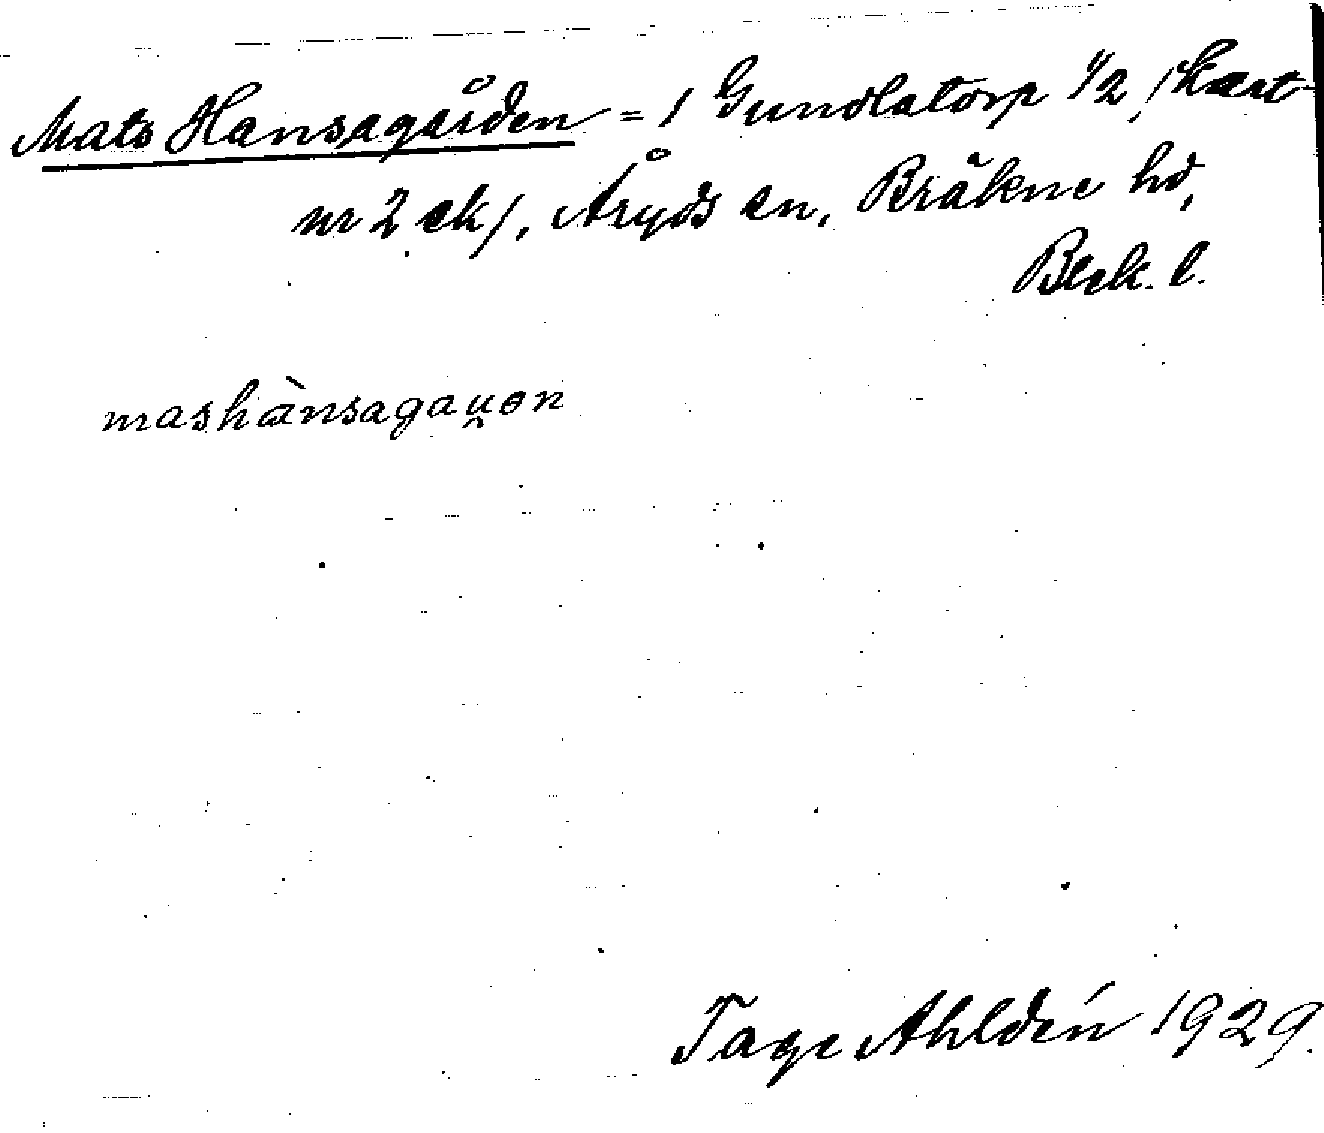 Mats Hansagården = 1 Gundlatorp 1/2 /kart-
nr 2 ek/, Åryds sn, Bräkne hd,
Blek. l.
mashànsagau̯ən
Tage Ahldén 1929.